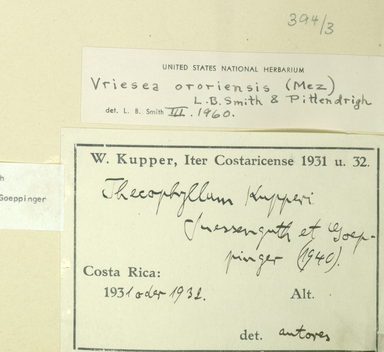 394/3
UNITED STATES NATIONAL HERBARIUM
Vriesea ororiensis (Mez)
L.B. Smith & Pittendrigh
det. L. B. Smith III. 1960.
h
Goeppinger
W. Kupper, Iter Costaricense 1931 u. 32.
Thecophyllum Kupperi
Suessenguth et Goep-
pinger (1940).
Costa Rica:
1931 oder 1932. Alt.
det. autores